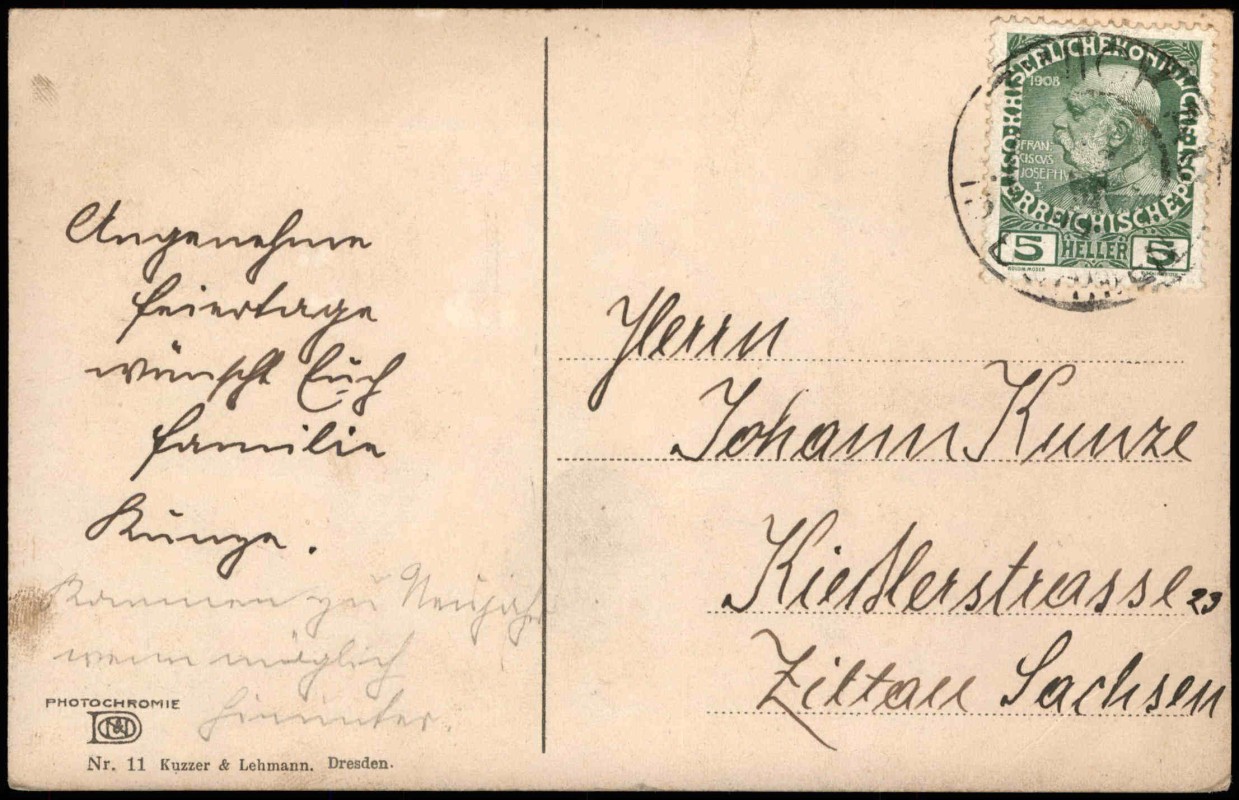 Angenehme
Feiertage
wünscht Euch
Familie
Kunze.
Kommen zu Neujahr
wenn möglich
hinunter.
PHOTOCHROMIE
Nr. 11 Kuzzer & Lehmann. Dresden.
KAISERLICHE KÖNIGLICHE
ÖSTERREICHISCHE POST
1908
FRAN
CISCVS
JOSEPH
I
5 HELLER 5
Herrn
Johann Kunze
Kießlerstrasse 23
Zittau Sachsen